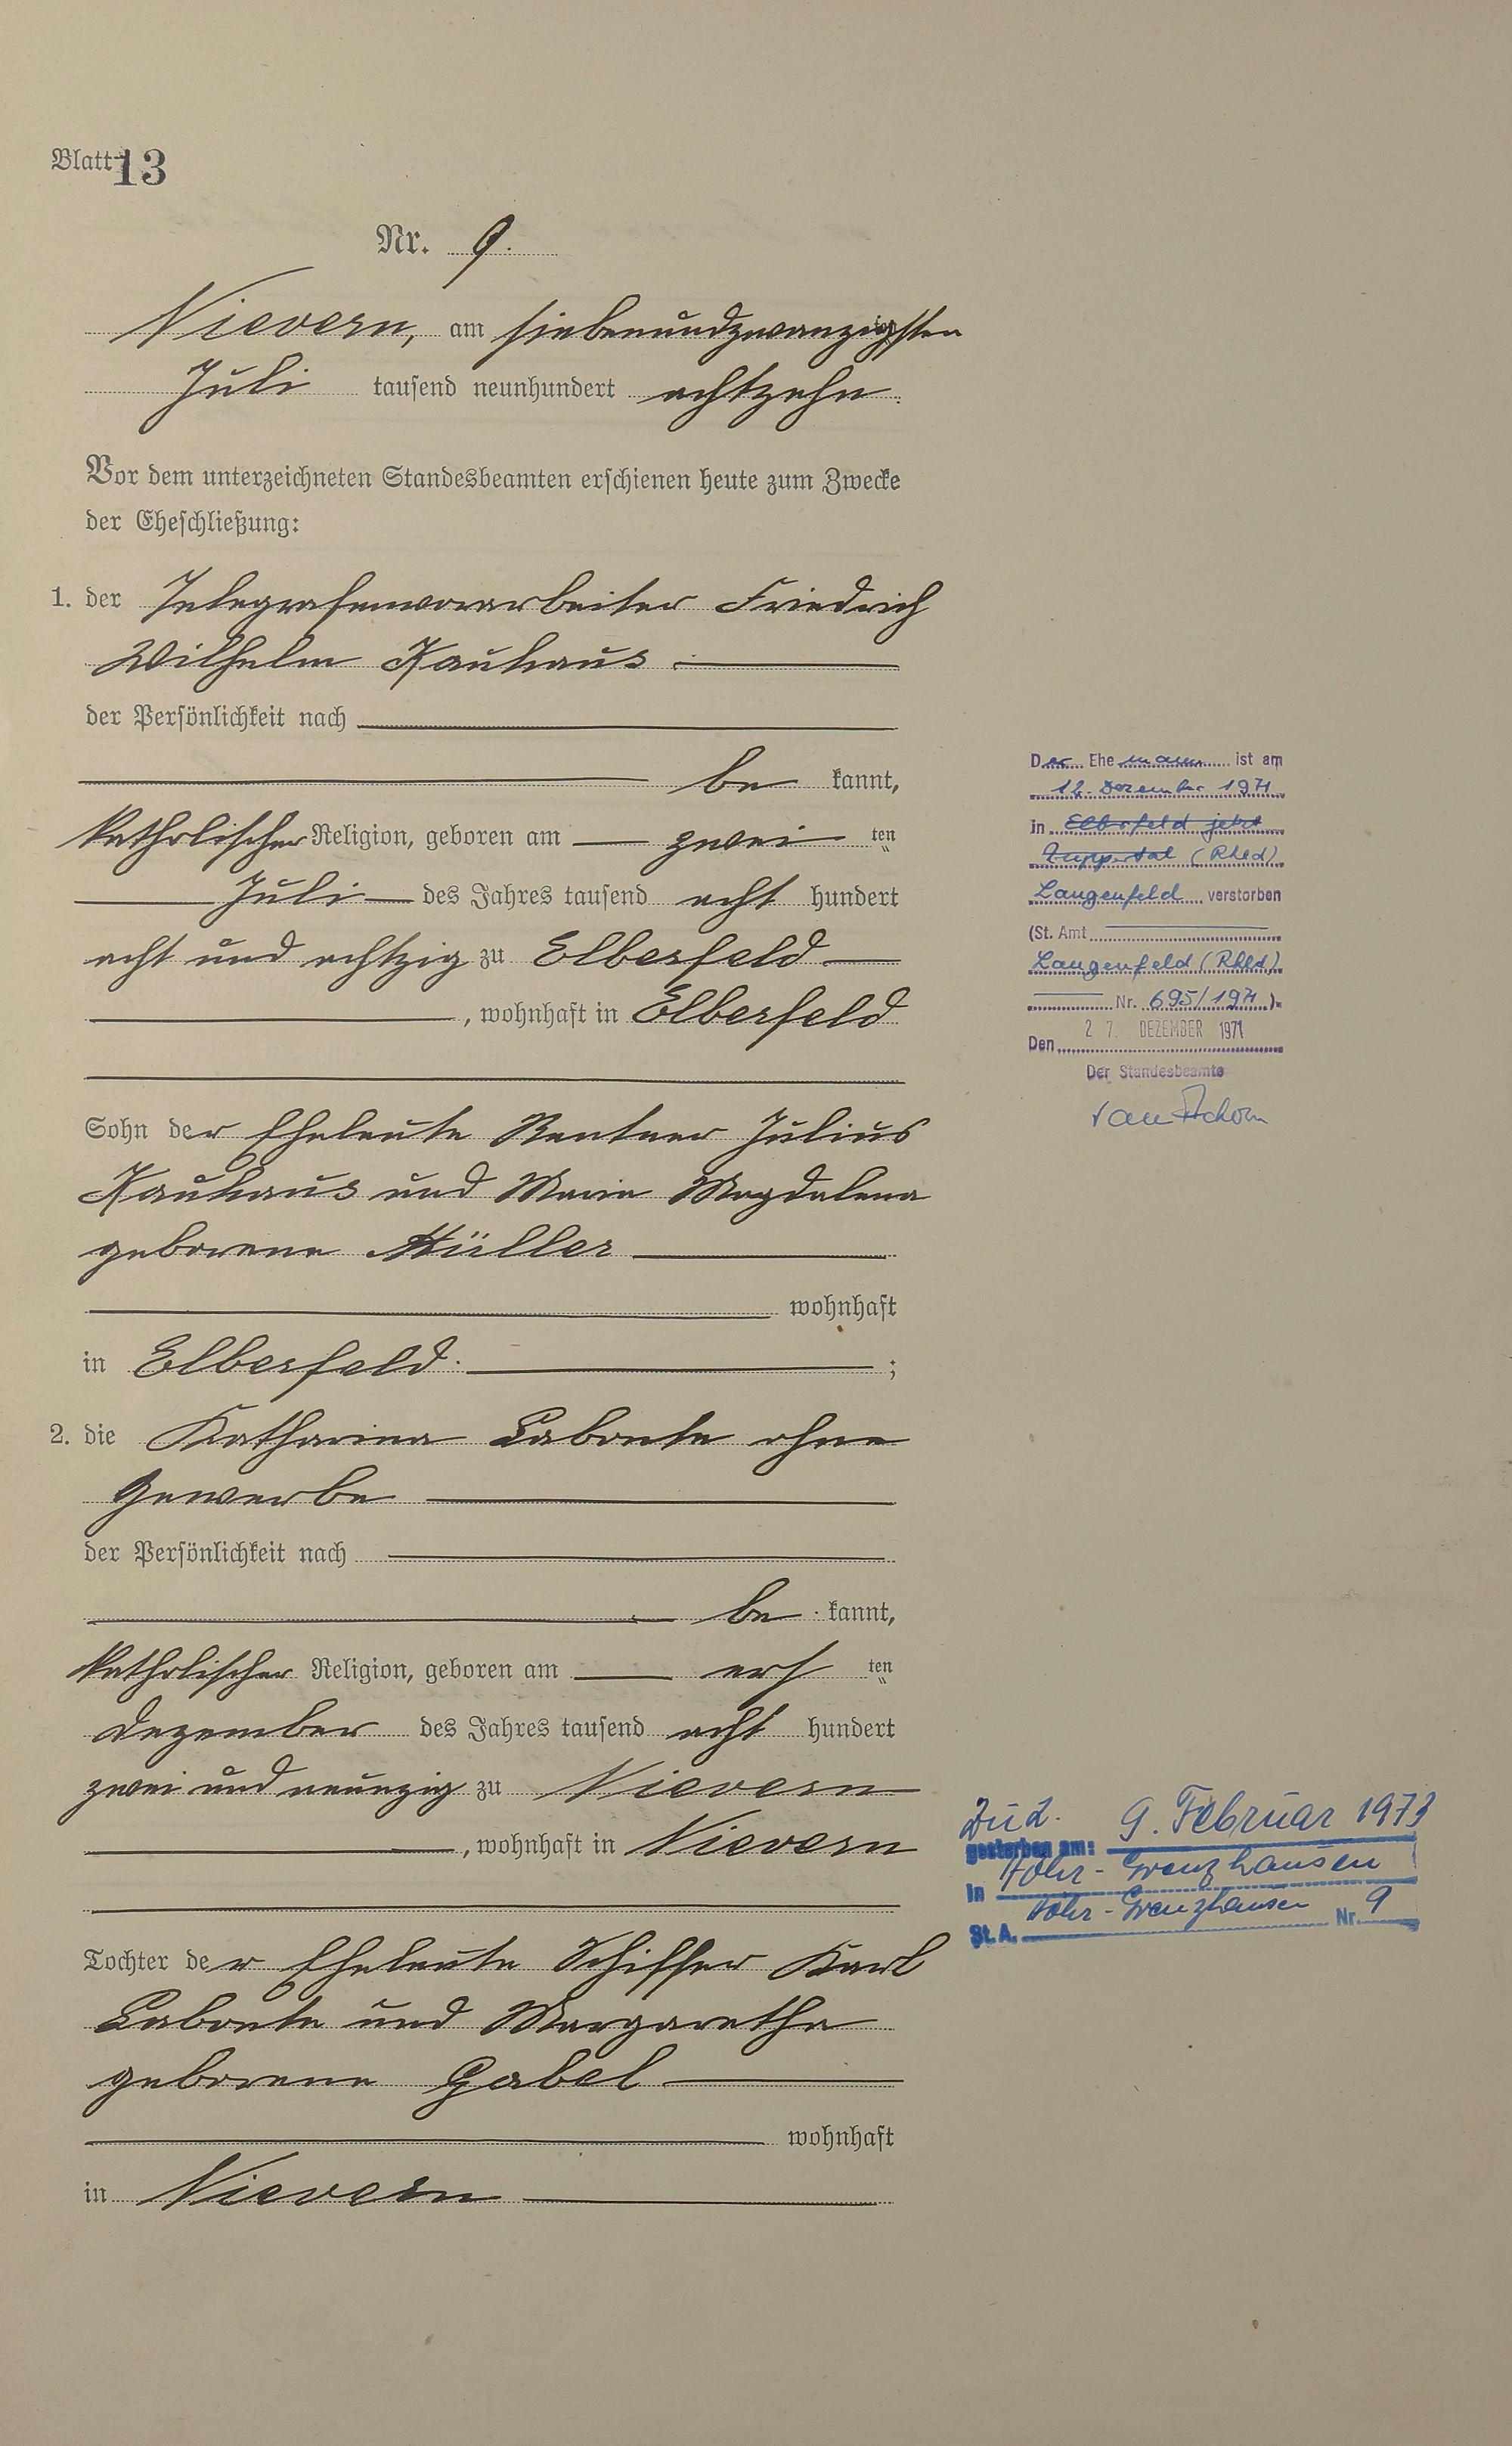 Blatt 13
Nr. 9.
Nievern, am siebenundzwanzigsten
Juli tausend neunhundert achtzehn.
Vor dem unterzeichneten Standesbeamten erschienen heute zum Zwecke
der Eheschließung:
1. der Telegrafenvorarbeiter Friedrich
Wilhelm Kauhaus
der Persönlichkeit nach
be kannt,
katholischer Religion, geboren am zwei ten
Juli des Jahres tausend acht hundert
acht und achtzig zu Elberfeld
, wohnhaft in Elberfeld
Sohn der Eheleute Rentner Julius
Kauhaus und Maria Magdalena
geborene Müller
wohnhaft
in Elberfeld ;
2. die Katharina Labonte ohne
Gewerbe
der Persönlichkeit nach
be kannt,
katholischer Religion, geboren am ers ten
Dezember des Jahres tausend acht hundert
zwei und neunzig zu Nievern
, wohnhaft in Nievern
Tochter der Eheleute Schiffer Karl
Labonte und Margaretha
geborene Gabel
wohnhaft
in Nievern
Der Ehemann ist am
12. Dezember 1971
in Elberfeld jetzt
Wuppertal (Rhld)
Langenfeld verstorben
(St. Amt
Langenfeld (Rhld)
Nr. 695/1971 ).
Den 27. DEZEMBER 1971
Der Standesbeamte
Zu 2. 9. Februar 1973
gestorben am:
in Höhr-Grenzhausen
St. A. Höhr-Grenzhausen Nr. 9